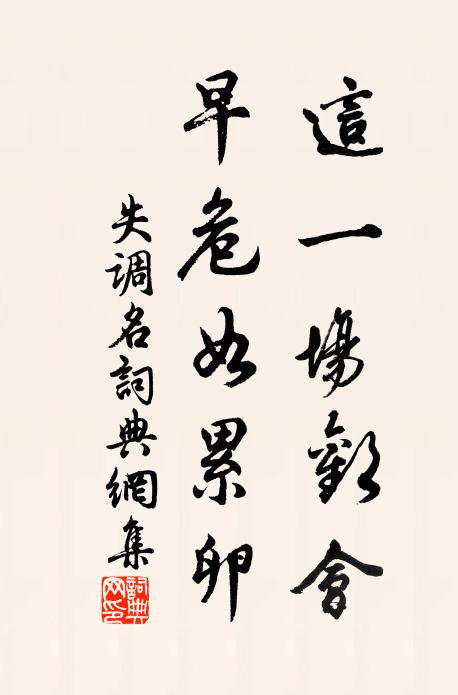 這一場歡會
早危如累卵
失調名詞典網集
詞典網印